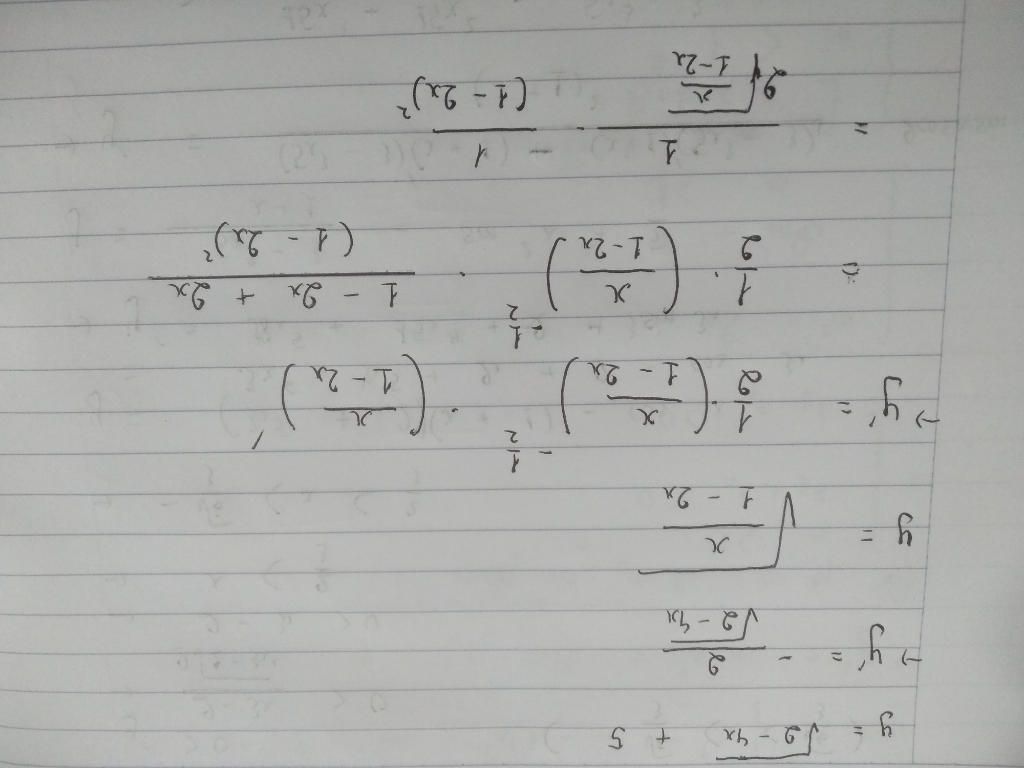 y = √(2 - 4x) + 5
→ y' = - 2/√(2 - 4x)
y = √(x/(1 - 2x))
→ y' = 1/2 · (x/(1 - 2x))^(-1/2) · (x/(1 - 2x))'
= 1/2 · (x/(1 - 2x))^(-1/2) · (1 - 2x + 2x)/(1 - 2x)²
= 1/(2√(x/(1 - 2x))) · 1/(1 - 2x)²